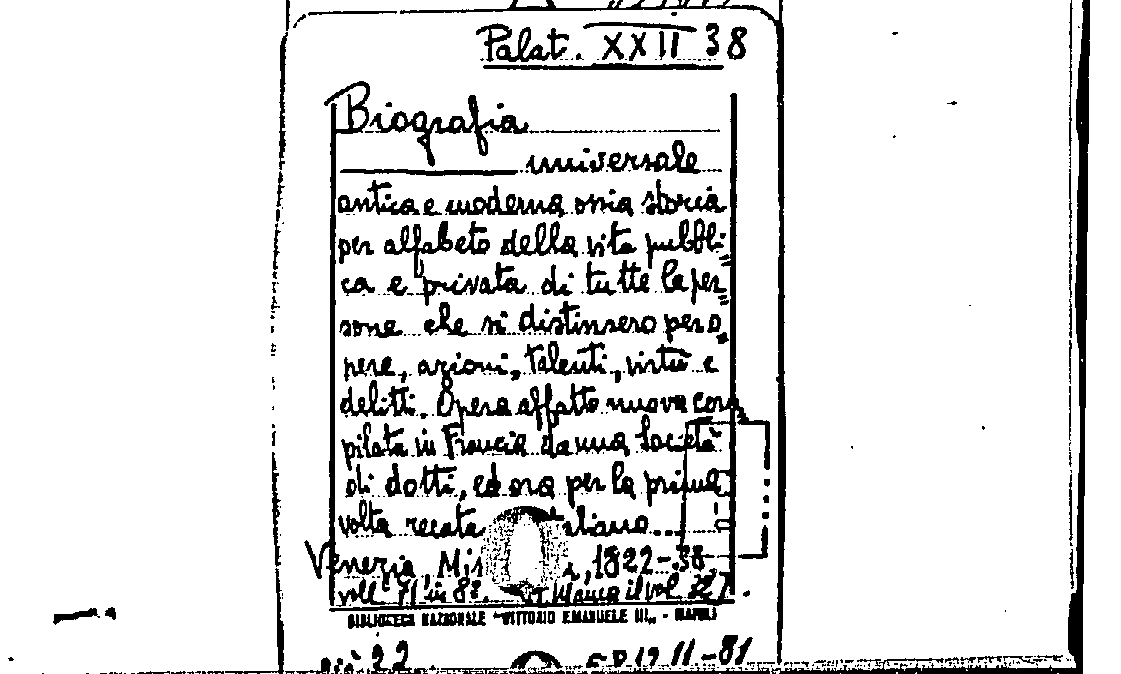 Palat. XXII 38
Biografia
universale
antica e moderna ossia storia
per alfabeto della vita pubbli=
ca e privata di tutte le per=
sone che si distinsero per o=
pere, azioni, talenti, virtù e
delitti. Opera affatto nuova com=
pilata in Francia da una società
di dotti, ed ora per la prima
volta recata
Venezia, 1822-38,
voll. 71 in 8°. Manca il vol.
BIBLIOTECA NAZIONALE "VITTORIO EMANUELE III" - NAPOLI
già 22